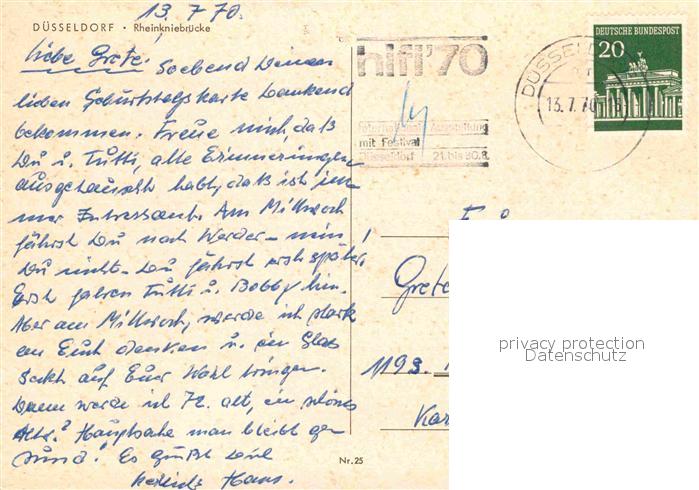 13.7.70.
DÜSSELDORF · Rheinkniebrücke
Liebe Grete! Soebend Deinen
lieben Geburtstagskarte dankend
bekommen. Freue mich, daß
Du u. Tutti, alte Erinnerungen
ausgetauscht habt, daß ist im-
mer Interessant. Am Mittwoch
fährst Du nach Werder – nein!
Du nicht – Du fährst erst später.
Erst fahren Tutti u. Bobby hin.
Aber am Mittwoch, werde ich stark
an Euch denken u. ein Glas
Sekt auf Euer Wohl bringen.
Dann werde ich 72. alt, ein schönes
Alter? Hauptsache man bleibt ge-
sund! Es grüßt Dich
Hans.
Nr. 25
hifi '70
Internationale Ausstellung
mit Festival
Düsseldorf 21. bis 30.8.
DÜSSEL
13.7.70
DEUTSCHE BUNDESPOST
20
Grete
1193.
Kar
privacy protection
Datenschutz